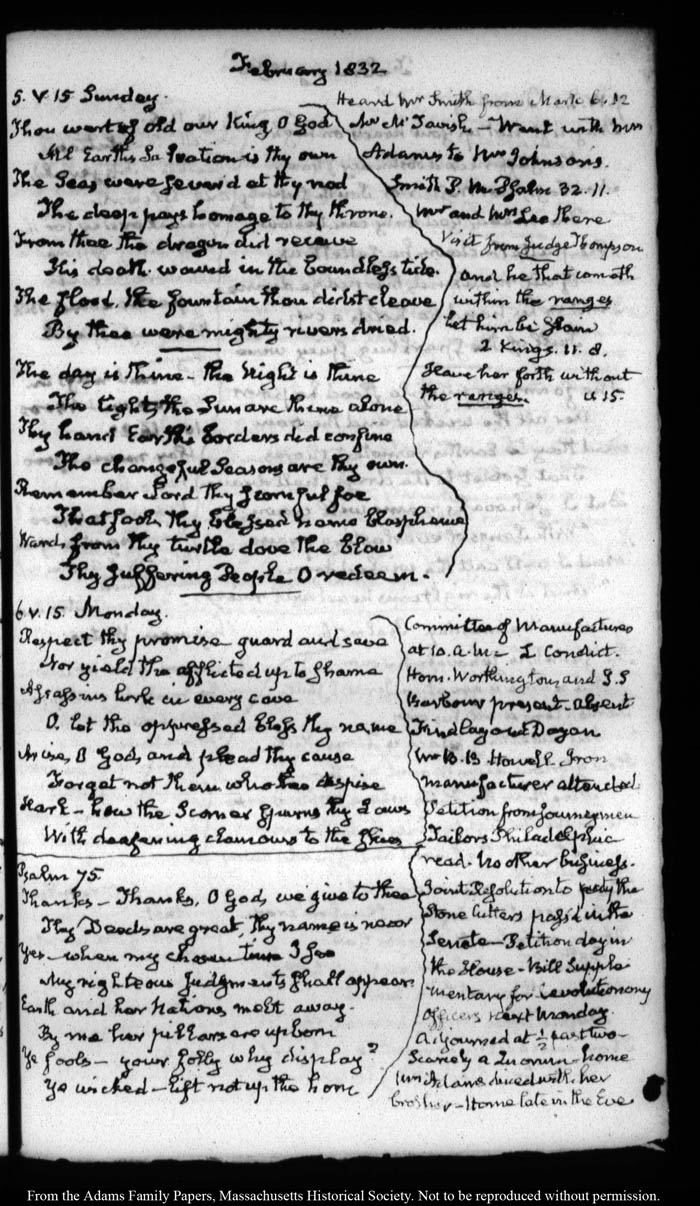 February 1832
5. V. 15 Sunday.
Thou wert of old our King O God
All Earth's Salvation is thy own
The Seas were sever'd at thy nod
The deep pays homage to thy throne.
From thee the dragon did receive
His death. wound in the boundless tide.
The flood, the fountain thou didst cleave
By thee were mighty rivers dried.
The day is thine - the Night is thine
The light, the Sun are thine alone
Thy hand Earth's borders did confine
The changeful Seasons are thy own.
Remember Lord thy scornful foe
That fools thy blessed name blaspheme
Ward from thy turtle dove the blow
Thy suffering People O redeem.
Heard Mr Smith from Mark 6. 12
Mrs McTavish - Went with Mrs
Adams to Mrs Johnson's.
Smith P. M. Psalm 32. 11.
Mr and Mrs Lee there
Visit from Judge Thompson
and he that cometh
within the ranges
let him be slain
2 Kings. 11. 8.
Have her forth without
the ranges. 15
6. V. 15. Monday.
Respect thy promise guard and save
Nor yield the afflicted up to shame
Assassins lurk in every cave
O. let the oppressed bless thy name
Arise, O God, and plead thy cause
Forget not them who thee despise
Hark - how the Scorner spurns thy Laws
With deafening clamours to the skies
Psalm 75
Thanks - Thanks, O God, we give to thee
Thy Deeds are great, thy name is near
Yes - when my chosen time I see
My righteous Judgments shall appear
Earth and her Nations melt away.
By me her pillars are upborn
Ye fools - your folly why display?
Ye wicked - lift not up the horn
Committee of Manufactures
at 10. A.M. L Condict.
Horn. Worthington, and J. S
Barbour present - absent
Findlay and Dayan
Mr B. B Howell Iron
manufacturer attended
Petition from Journeymen
Tailors Philadelphia
read. No other business.
Joint Resolution to pay the
Stone cutters pass'd in the
Senate - Petition day in
the House - Bill Supple
mentary for Revolutionary
Officers next Monday.
Adjourned at ½ past two
Scarcely a Quorum - home
Mrs Adams dined with her
brother - Home late in the Eve
From the Adams Family Papers, Massachusetts Historical Society. Not to be reproduced without permission.